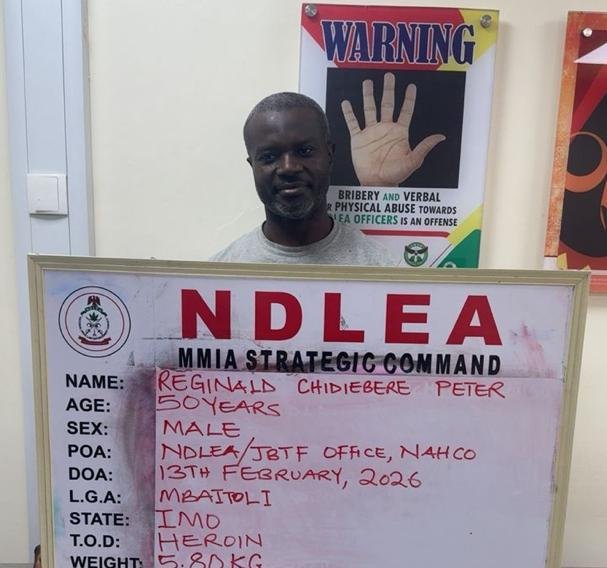 WARNING
BRIBERY AND VERBAL
PHYSICAL ABUSE TOWARDS
OFFICERS IS AN OFFENSE
NDLEA
MMIA STRATEGIC COMMAND
NAME: REGINALD CHIDIEBERE PETER
AGE: 50 YEARS
SEX: MALE
POA: NDLEA/JBTF OFFICE, NAHCO
DOA: 13TH FEBRUARY, 2026
L.G.A: MBAITOLI
STATE: IMO
T.O.D: HEROIN
WEIGHT: 5.80 KG